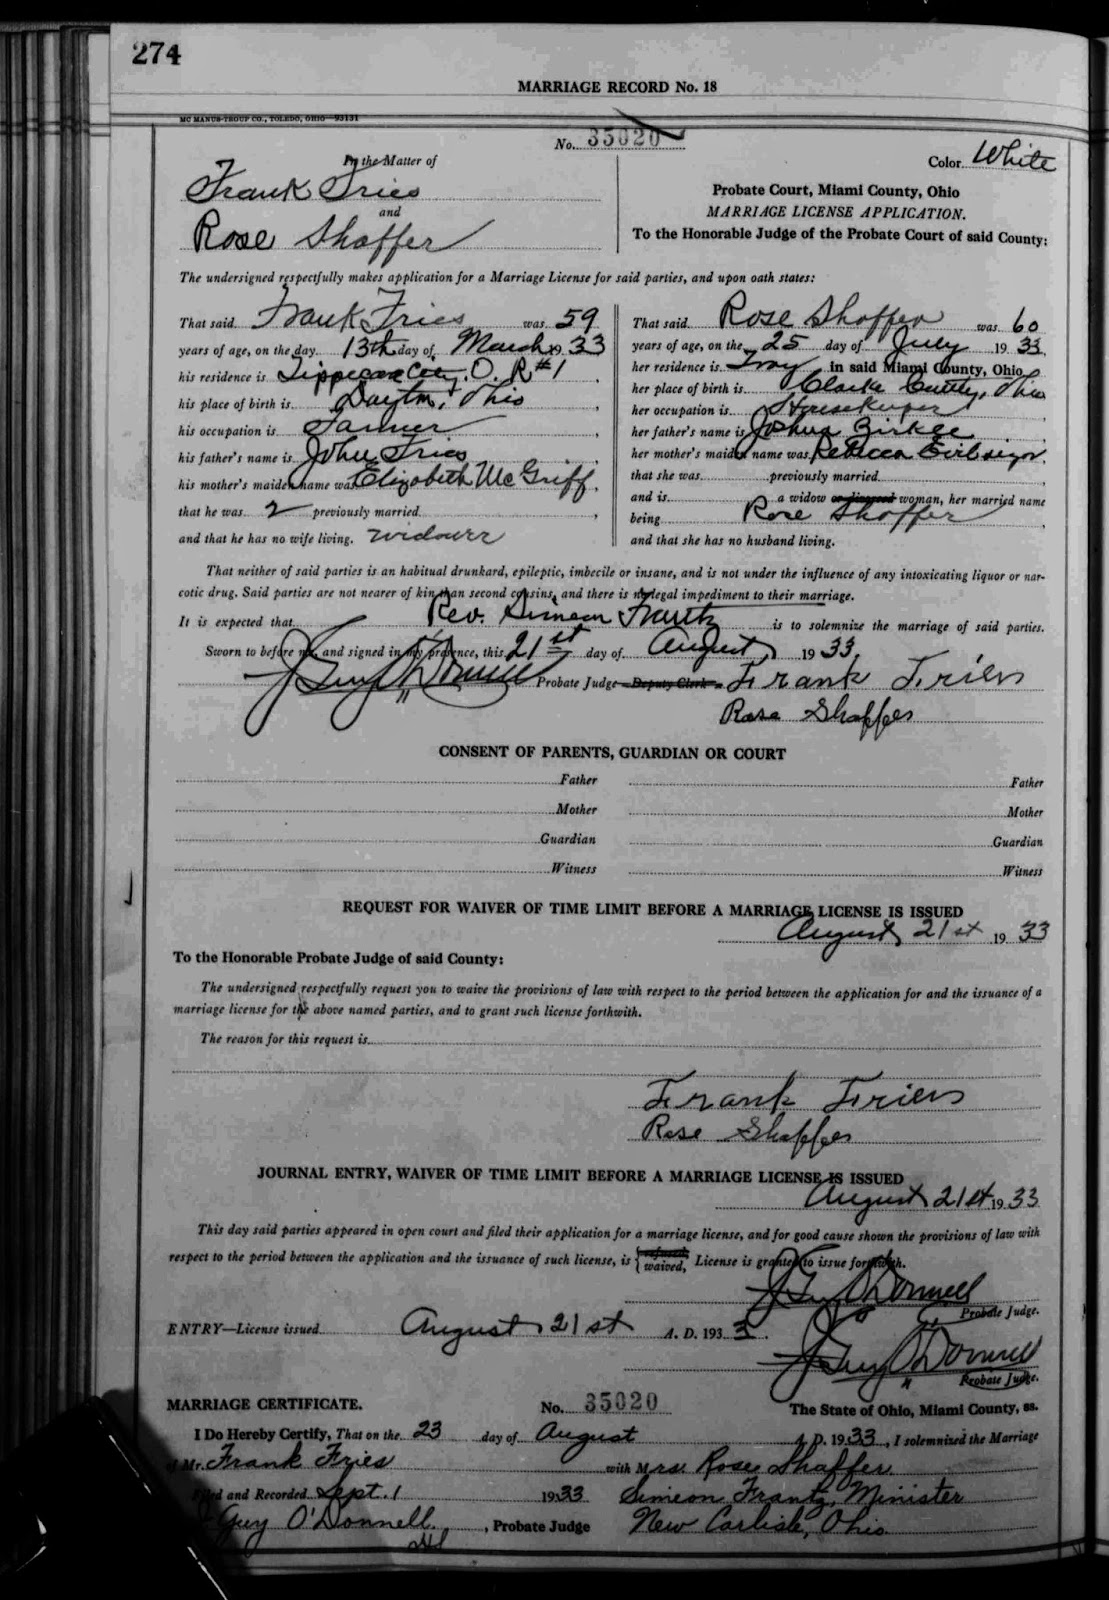 274
MARRIAGE RECORD No. 18
MC MANUS-TROUP CO., TOLEDO, OHIO—93131
No. 35020
In the Matter of
Frank Fries
and
Rose Shaffer
Color White
Probate Court, Miami County, Ohio
MARRIAGE LICENSE APPLICATION.
To the Honorable Judge of the Probate Court of said County:
The undersigned respectfully makes application for a Marriage License for said parties, and upon oath states:
That said Frank Fries was 59
years of age, on the day 13th day of March 1933
his residence is Tippecanoe City, O. R#1
his place of birth is Dayton, Ohio
his occupation is Farmer
his father's name is John Fries
his mother's maiden name was Elizabeth McGriff.
that he was 2 previously married
and that he has no wife living. widower
That said Rose Shaffer was 60
years of age, on the 25 day of July 1933
her residence is Troy in said Miami County, Ohio
her place of birth is Clarke County, Ohio
her occupation is Housekeeper
her father's name is Joshua Zirkle
her mother's maiden name was Rebecca
that she was previously married
and is a widow or divorced woman, her married name
being Rose Shaffer
and that she has no husband living.
That neither of said parties is an habitual drunkard, epileptic, imbecile or insane, and is not under the influence of any intoxicating liquor or nar-
cotic drug. Said parties are not nearer of kin than second cousins, and there is no legal impediment to their marriage.
It is expected that Rev. Simeon Frantz is to solemnize the marriage of said parties.
Sworn to before me, and signed in my presence, this 21st day of August, 1933.
J Guy O'Donnell Probate Judge—Deputy Clerk Frank Fries
Rose Shaffer
CONSENT OF PARENTS, GUARDIAN OR COURT
Father Father
Mother Mother
Guardian Guardian
Witness Witness
REQUEST FOR WAIVER OF TIME LIMIT BEFORE A MARRIAGE LICENSE IS ISSUED
August 21st 1933
To the Honorable Probate Judge of said County:
The undersigned respectfully request you to waive the provisions of law with respect to the period between the application for and the issuance of a
marriage license for the above named parties, and to grant such license forthwith.
The reason for this request is
Frank Fries
Rose Shaffer
JOURNAL ENTRY, WAIVER OF TIME LIMIT BEFORE A MARRIAGE LICENSE IS ISSUED
August 21st 1933
This day said parties appeared in open court and filed their application for a marriage license, and for good cause shown the provisions of law with
respect to the period between the application and the issuance of such license, is { refused waived, License is granted to issue forthwith.
J Guy O'Donnell
Probate Judge.
ENTRY—License issued August 21st A. D. 1933.
J Guy O'Donnell
Probate Judge.
MARRIAGE CERTIFICATE. No. 35020 The State of Ohio, Miami County, ss.
I Do Hereby Certify, That on the 23 day of August A. D. 1933, I solemnized the Marriage
of Mr. Frank Fries with Mrs. Rose Shaffer.
Filed and Recorded Sept. 1 1933 Simeon Frantz, Minister
Guy O'Donnell, Probate Judge New Carlisle, Ohio.